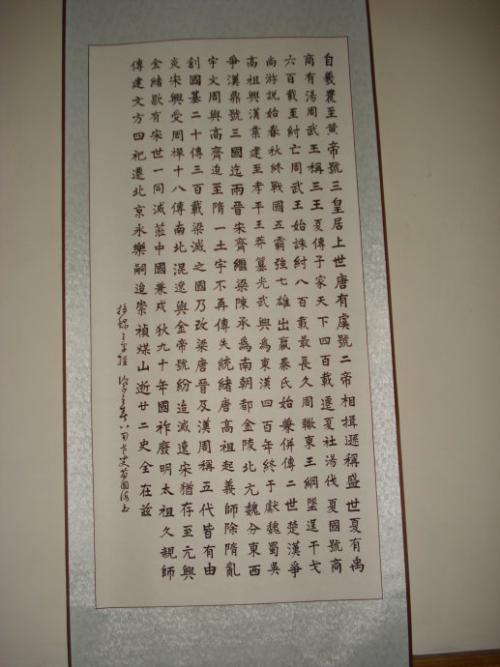 自羲農至黃帝號三皇居上世唐有虞號二帝相揖遜稱盛世夏有禹
商有湯周武王稱三王夏傳子家天下四百載遷夏社湯伐夏國號商
六百載至紂亡周武王始誅紂八百載最長久周轍東王綱墜逞干戈
尚游說始春秋終戰國五霸強七雄出嬴秦氏始兼併傳二世楚漢爭
高祖興漢業建至孝平王莽篡光武興為東漢四百年終于獻魏蜀吳
爭漢鼎號三國迄兩晉宋齊繼梁陳承為南朝都金陵北元魏分東西
宇文周與高齊迨至隋一土宇不再傳失統緒唐高祖起義師除隋亂
創國基二十傳三百載梁滅之國乃改梁唐晉及漢周稱五代皆有由
炎宋興受周禪十八傳南北混遼與金帝號紛迨滅遼宋猶存至元興
金緒歇有宋世一同滅莅中國兼戎狄九十年國祚廢明太祖久親師
傳建文方四祀遷北京永樂嗣迨崇禎煤山逝廿二史全在茲